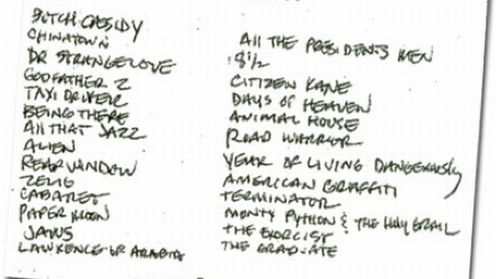 BUTCH CASSIDY
CHINATOWN
DR STRANGELOVE
GODFATHER 2
TAXI DRIVER
BEING THERE
All THAT JAZZ
ALIEN
REAR WINDOW
ZELIG
CABARET
PAPER MOON
JAWS
LAWRENCE OF ARABIA
All THE PRESIDENTS MEN
8½
CITIZEN KANE
DAYS OF HEAVEN
ANIMAL HOUSE
ROAD WARRIOR
YEAR OF LIVING DANGEROUSLY
AMERICAN GRAFFITI
TERMINATOR
MONTY PYTHON & THE HOLY GRAIL
THE EXORCIST
THE GRADUATE